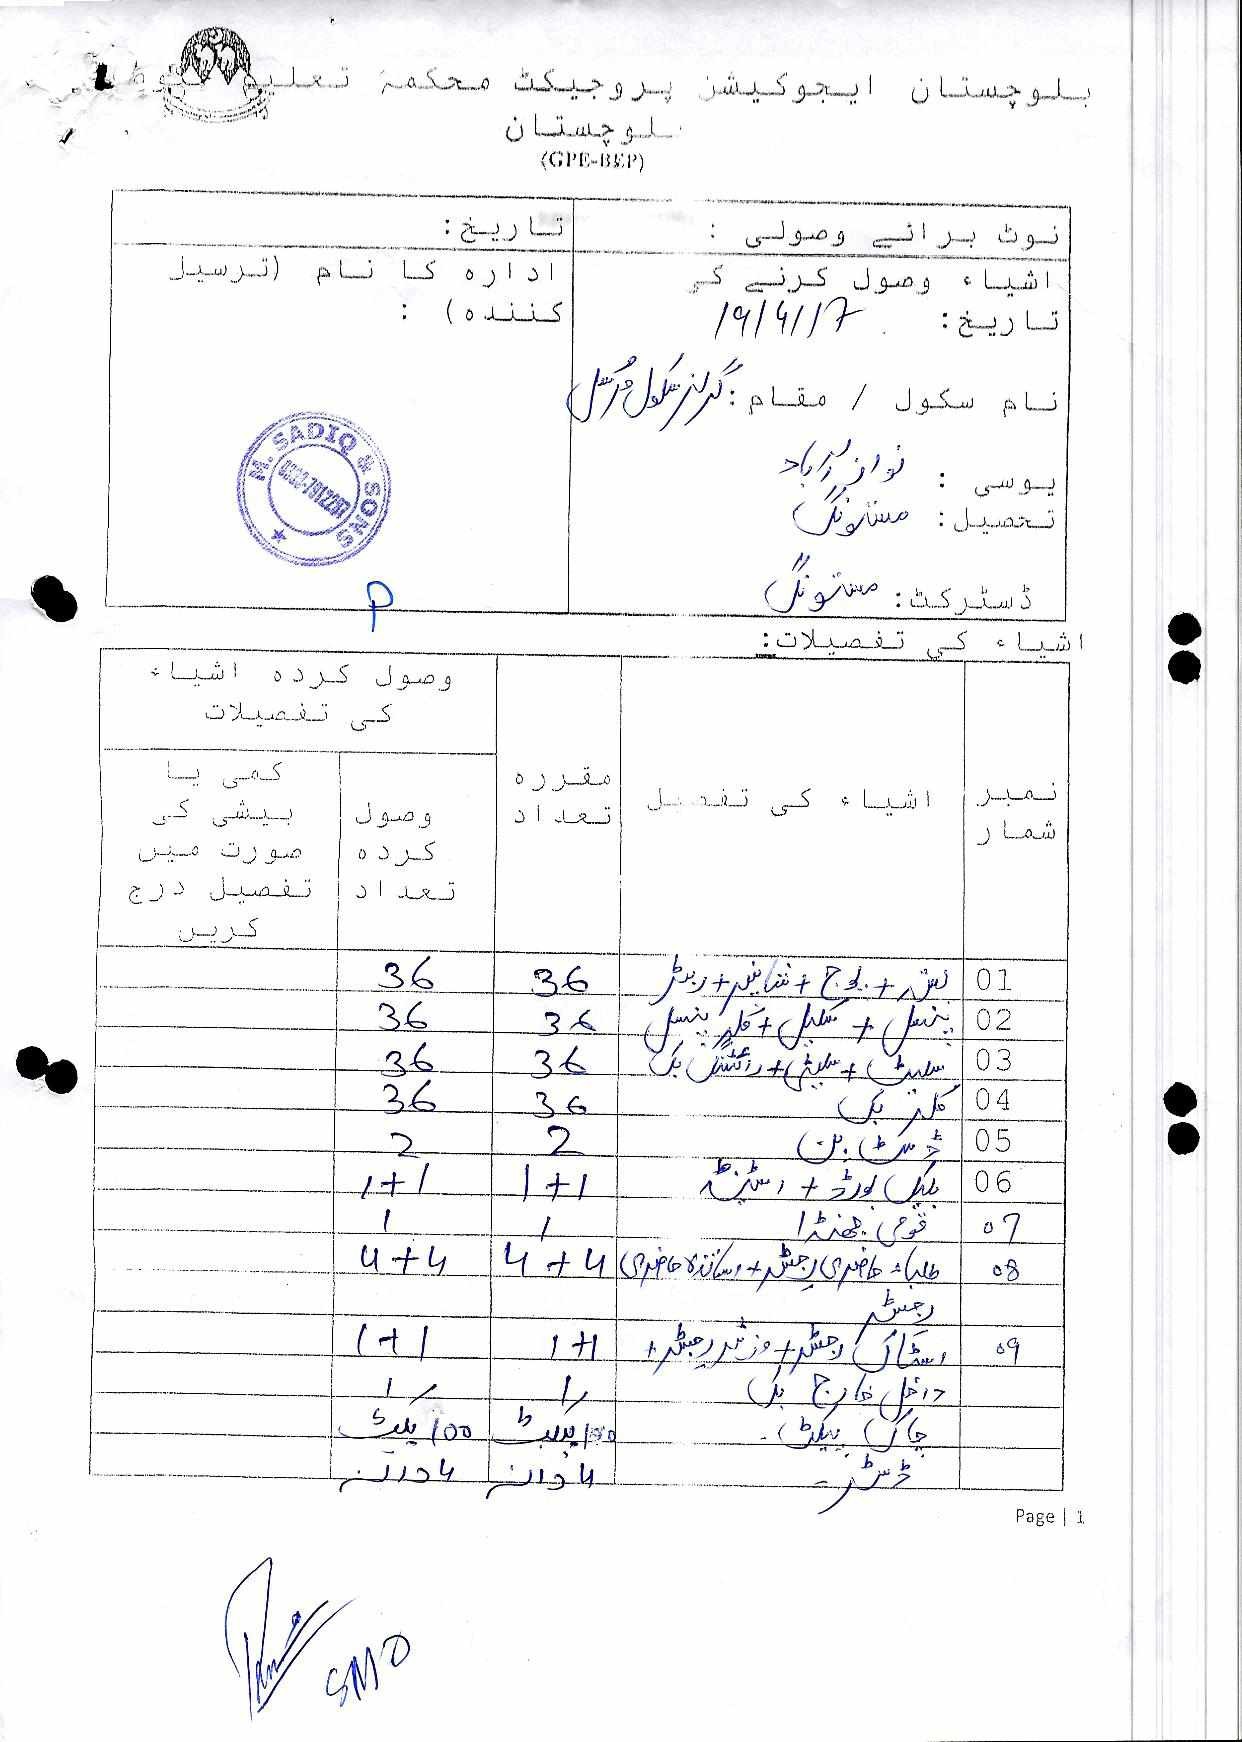 بلوچستان ایجوکیشن پروجیکٹ محکمۂ تعلیم
بلوچستان
(GPE-BEP)
نوٹ برائے وصولی :
تاریخ:
اشیاء وصول کرنے کی
تاریخ: 19/4/17
ادارہ کا نام (ترسیل
کنندہ) :
نام سکول / مقام : گرلز سکول
یوسی :
تحصیل: مستونگ
ڈسٹرکٹ: مستونگ
M. SADIQ & SONS
P
اشیاء کی تفصیلات:
نمبر شمار
اشیاء کی تفصیل
مقررہ تعداد
وصول کردہ اشیاء کی تفصیلات
وصول کردہ تعداد
کمی یا بیشی کی صورت میں تفصیل درج کریں
01 + + شاپنر + ربڑ 36 36
02 پنسل + سکیل + کلر پنسل 36 36
03 سلیٹ + سلیٹی + رائٹنگ بک 36 36
04 کلر بک 36 36
05 ڈسٹ بن 2 2
06 بلیک بورڈ + اسٹینڈ 1+1 1+1
07 قومی جھنڈا 1 1
08 طلباء حاضری رجسٹر + اساتذہ حاضری 4+4 4+4
رجسٹر
09 اسٹاک رجسٹر + وزٹر رجسٹر + 1+1 1+1
داخل خارج بک 1 1
چاک پیکٹ - 100 پیکٹ 100 پیکٹ
ڈسٹر - 4 دانہ 4 دانہ
Page | 1
SMO